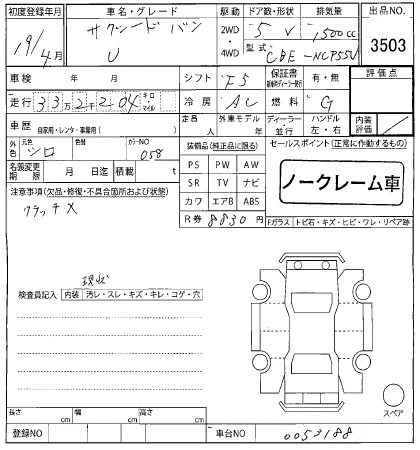 初度登録年月 車名・グレード 駆動 ドア数・形状 排気量 出品NO.
19/4月 サクシードバン U 2WD・4WD 5 V 1500cc 3503
型式 CBE-NCP55V
車検 年 月 シフト F5 保証書 有・無 評価点
走行 33万2千204 キロ・マイル 冷房 AC 燃料 G
車歴 自家用・レンタ・事業用( ) 定員 人 外車モデル 年 ディーラー・並行 ハンドル 左・右 内装評価
外色 元色 シロ 色替 カラーNO 058 装備品(純正品に限る) セールスポイント(正常に作動するもの)
PS PW AW
名義変更期限 月 日迄 積載 t SR TV ナビ ノークレーム車
注意事項(欠品・修復・不具合箇所および状態) カワ エアB ABS
クラッチ× R券 8830円 Fガラス トビ石・キズ・ヒビ・ワレ・リペア跡
現状
検査員記入 内装 汚レ・スレ・キズ・キレ・コゲ・穴
スペア
長さ cm 幅 cm 高さ cm
登録NO 車台NO 0053188